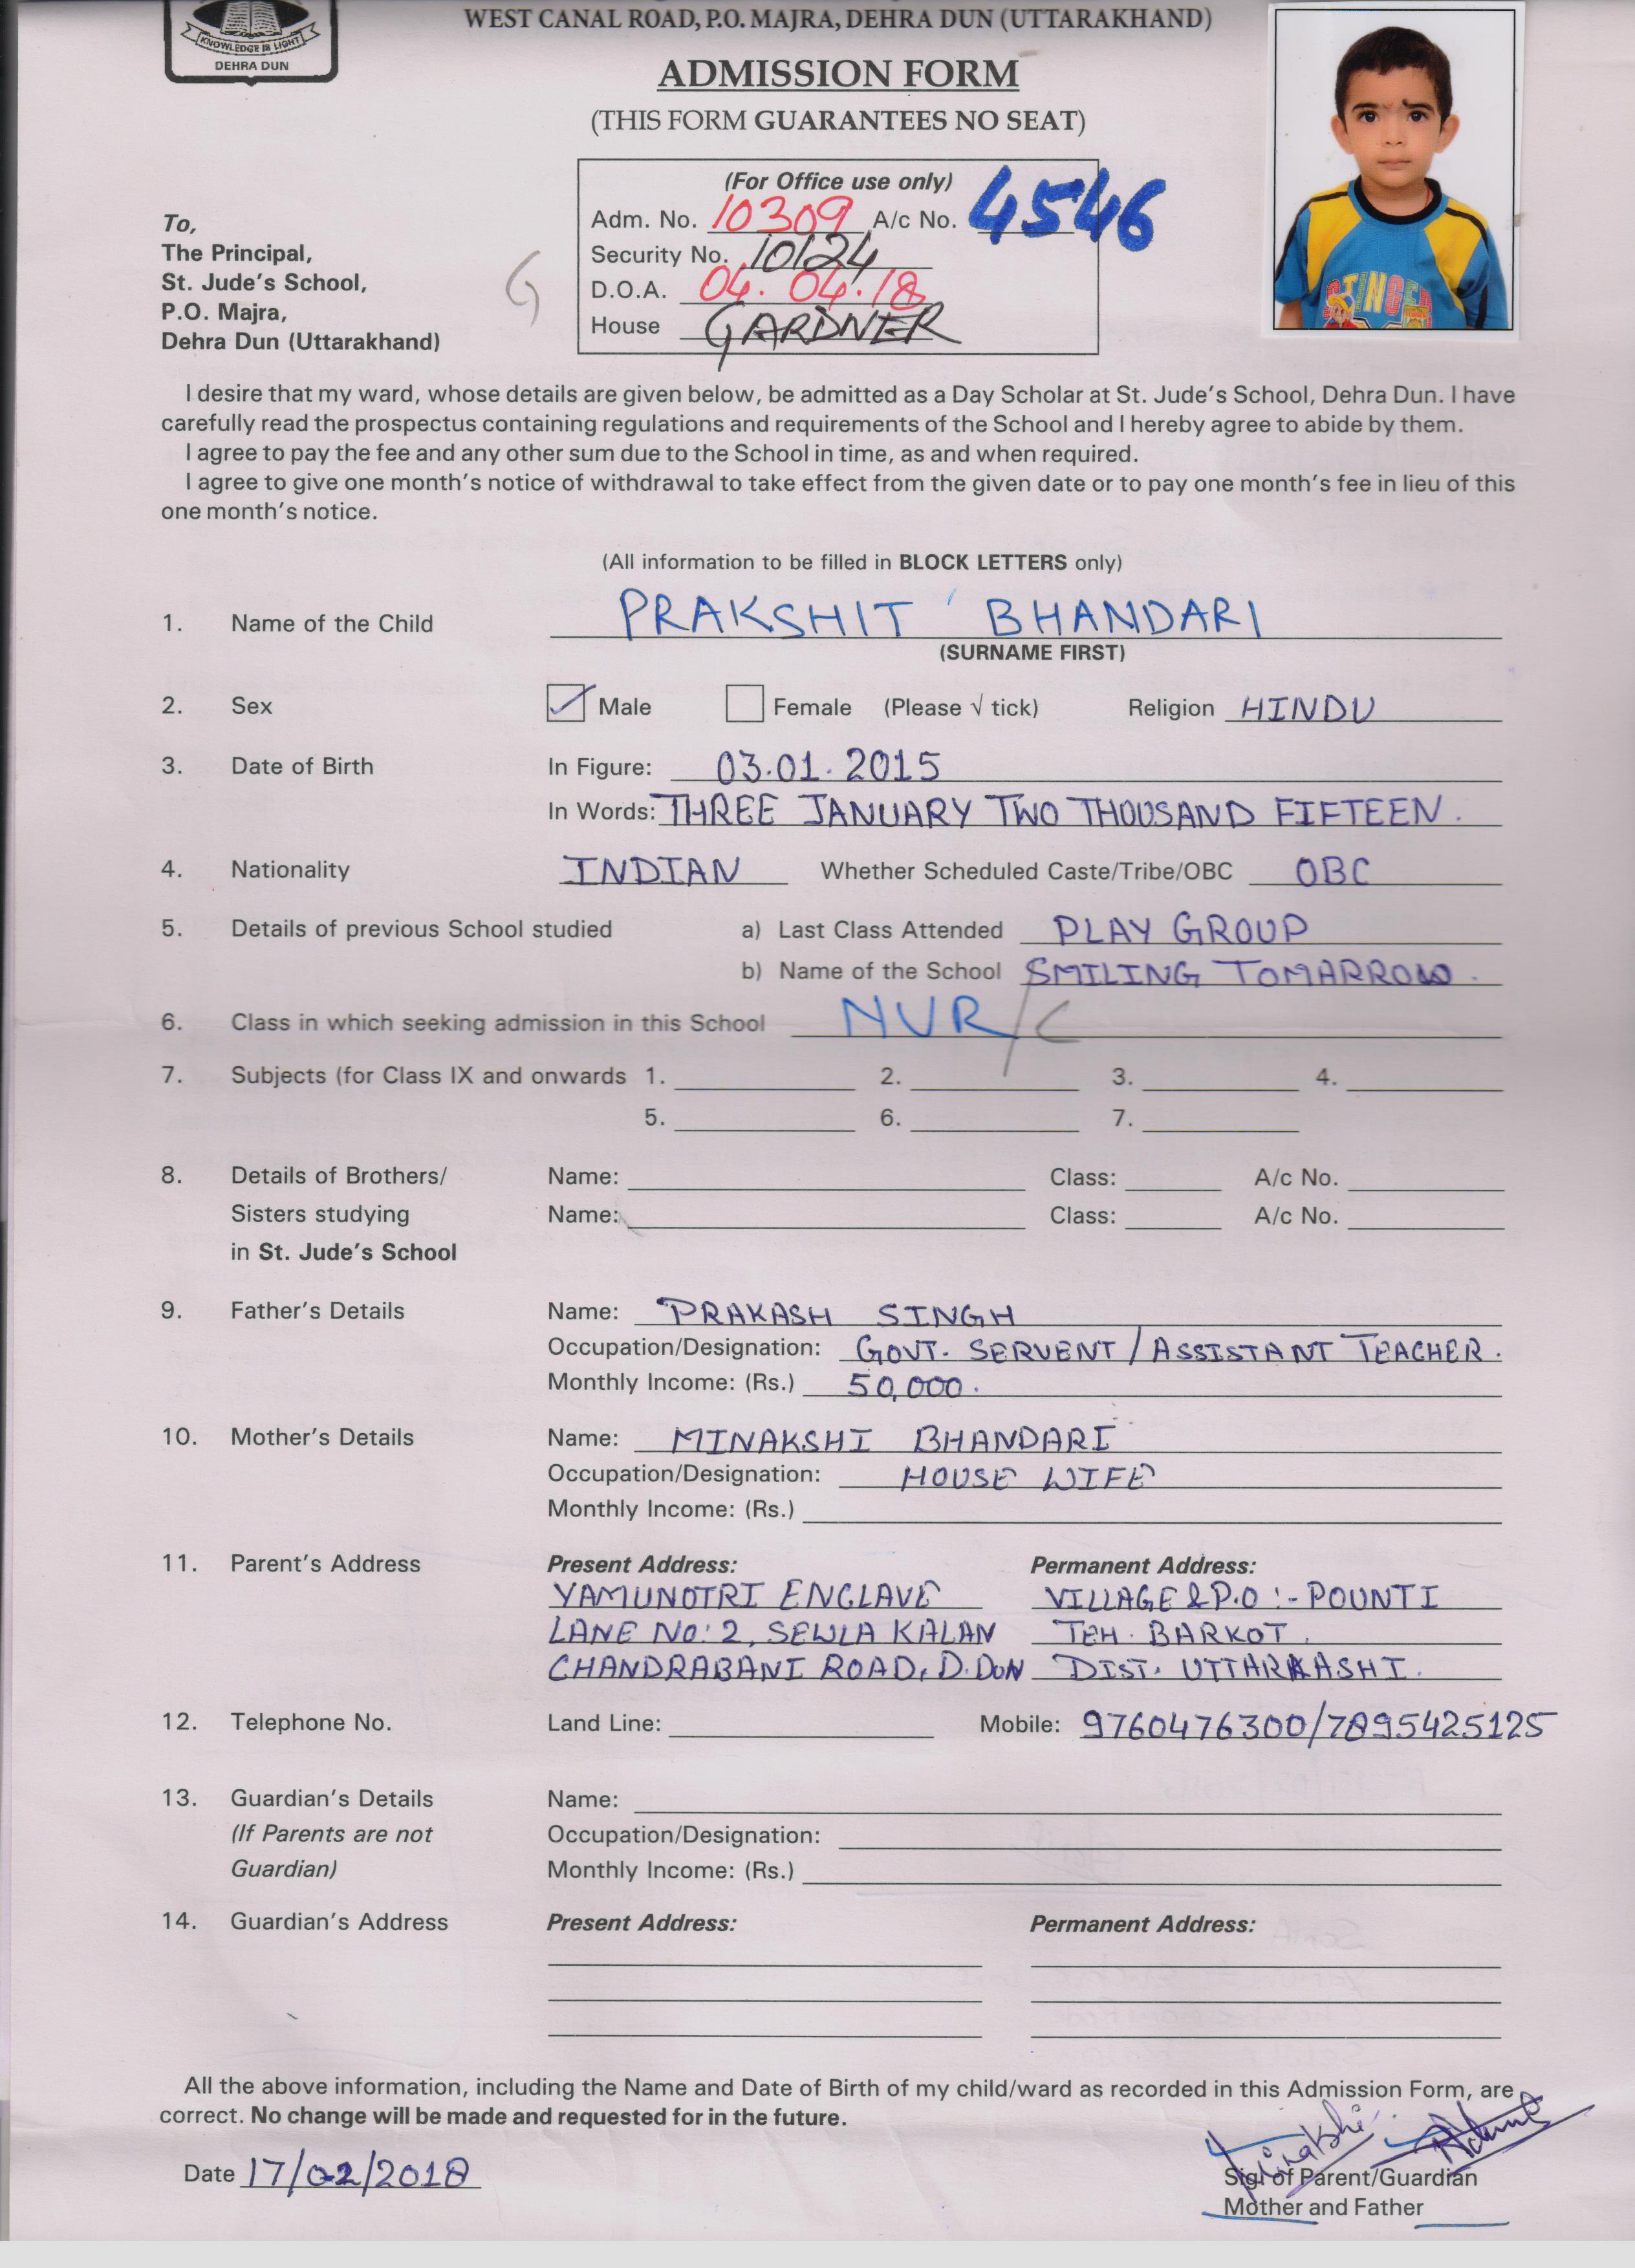 KNOWLEDGE IS LIGHT
DEHRA DUN
WEST CANAL ROAD, P.O. MAJRA, DEHRA DUN (UTTARAKHAND)
ADMISSION FORM
(THIS FORM GUARANTEES NO SEAT)
(For Office use only)
Adm. No. 10309 A/c No. 4546
Security No. 10124
D.O.A. 04.04.18
House GARDNER
To,
The Principal,
St. Jude's School,
P.O. Majra,
Dehra Dun (Uttarakhand)
G
I desire that my ward, whose details are given below, be admitted as a Day Scholar at St. Jude's School, Dehra Dun. I have
carefully read the prospectus containing regulations and requirements of the School and I hereby agree to abide by them.
I agree to pay the fee and any other sum due to the School in time, as and when required.
I agree to give one month's notice of withdrawal to take effect from the given date or to pay one month's fee in lieu of this
one month's notice.
(All information to be filled in BLOCK LETTERS only)
1. Name of the Child PRAKSHIT BHANDARI
(SURNAME FIRST)
2. Sex Male Female (Please √ tick) Religion HINDU
3. Date of Birth In Figure: 03.01.2015
In Words: THREE JANUARY TWO THOUSAND FIFTEEN.
4. Nationality INDIAN Whether Scheduled Caste/Tribe/OBC OBC
5. Details of previous School studied a) Last Class Attended PLAY GROUP
b) Name of the School SMILING TOMARROW.
6. Class in which seeking admission in this School NUR/C
7. Subjects (for Class IX and onwards 1. 2. 3. 4.
5. 6. 7.
8. Details of Brothers/ Name: Class: A/c No.
Sisters studying Name: Class: A/c No.
in St. Jude's School
9. Father's Details Name: PRAKASH SINGH
Occupation/Designation: GOVT. SERVENT / ASSISTANT TEACHER.
Monthly Income: (Rs.) 50,000.
10. Mother's Details Name: MINAKSHI BHANDARI
Occupation/Designation: HOUSE WIFE
Monthly Income: (Rs.)
11. Parent's Address Present Address: Permanent Address:
YAMUNOTRI ENCLAVE VILLAGE & P.O :- POUNTI
LANE NO: 2, SEWLA KALAN TEH. BARKOT.
CHANDRABANI ROAD, D.DUN DIST. UTTARKASHI.
12. Telephone No. Land Line: Mobile: 9760476300/7895425125
13. Guardian's Details Name:
(If Parents are not Occupation/Designation:
Guardian) Monthly Income: (Rs.)
14. Guardian's Address Present Address: Permanent Address:
All the above information, including the Name and Date of Birth of my child/ward as recorded in this Admission Form, are
correct. No change will be made and requested for in the future.
Minakshi
Date 17/02/2018 Sig. of Parent/Guardian
Mother and Father